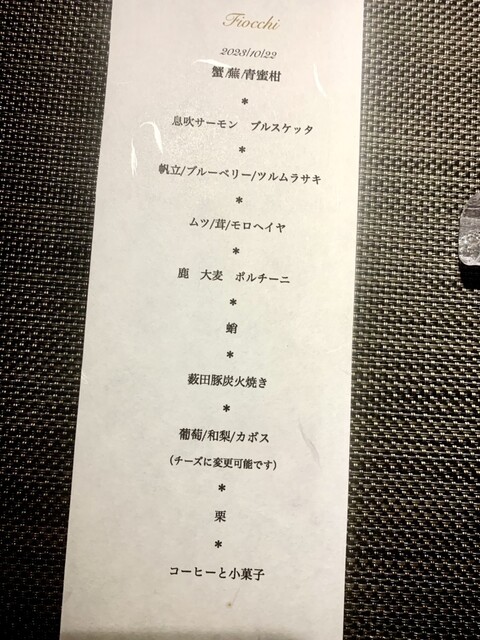 Fiocchi
2023/10/22
蟹/蕪/青蜜柑
*
息吹サーモン ブルスケッタ
*
帆立/ブルーベリー/ツルムラサキ
*
ムツ/茸/モロヘイヤ
*
鹿 大麦 ポルチーニ
*
蛸
*
薮田豚炭火焼き
*
葡萄/和梨/カボス
(チーズに変更可能です)
*
栗
*
コーヒーと小菓子